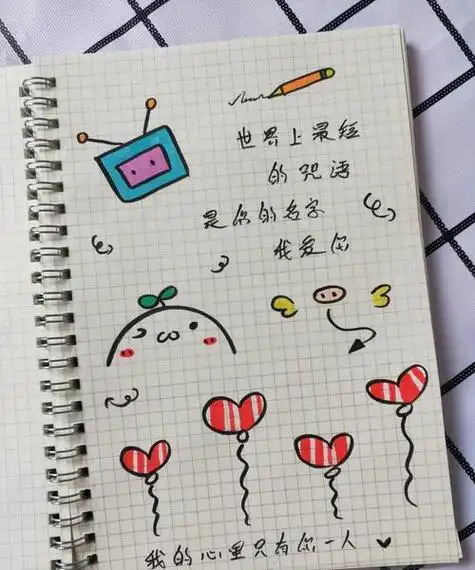 世界上最短
的咒语
是你的名字
我爱你
我的心里只有你一人